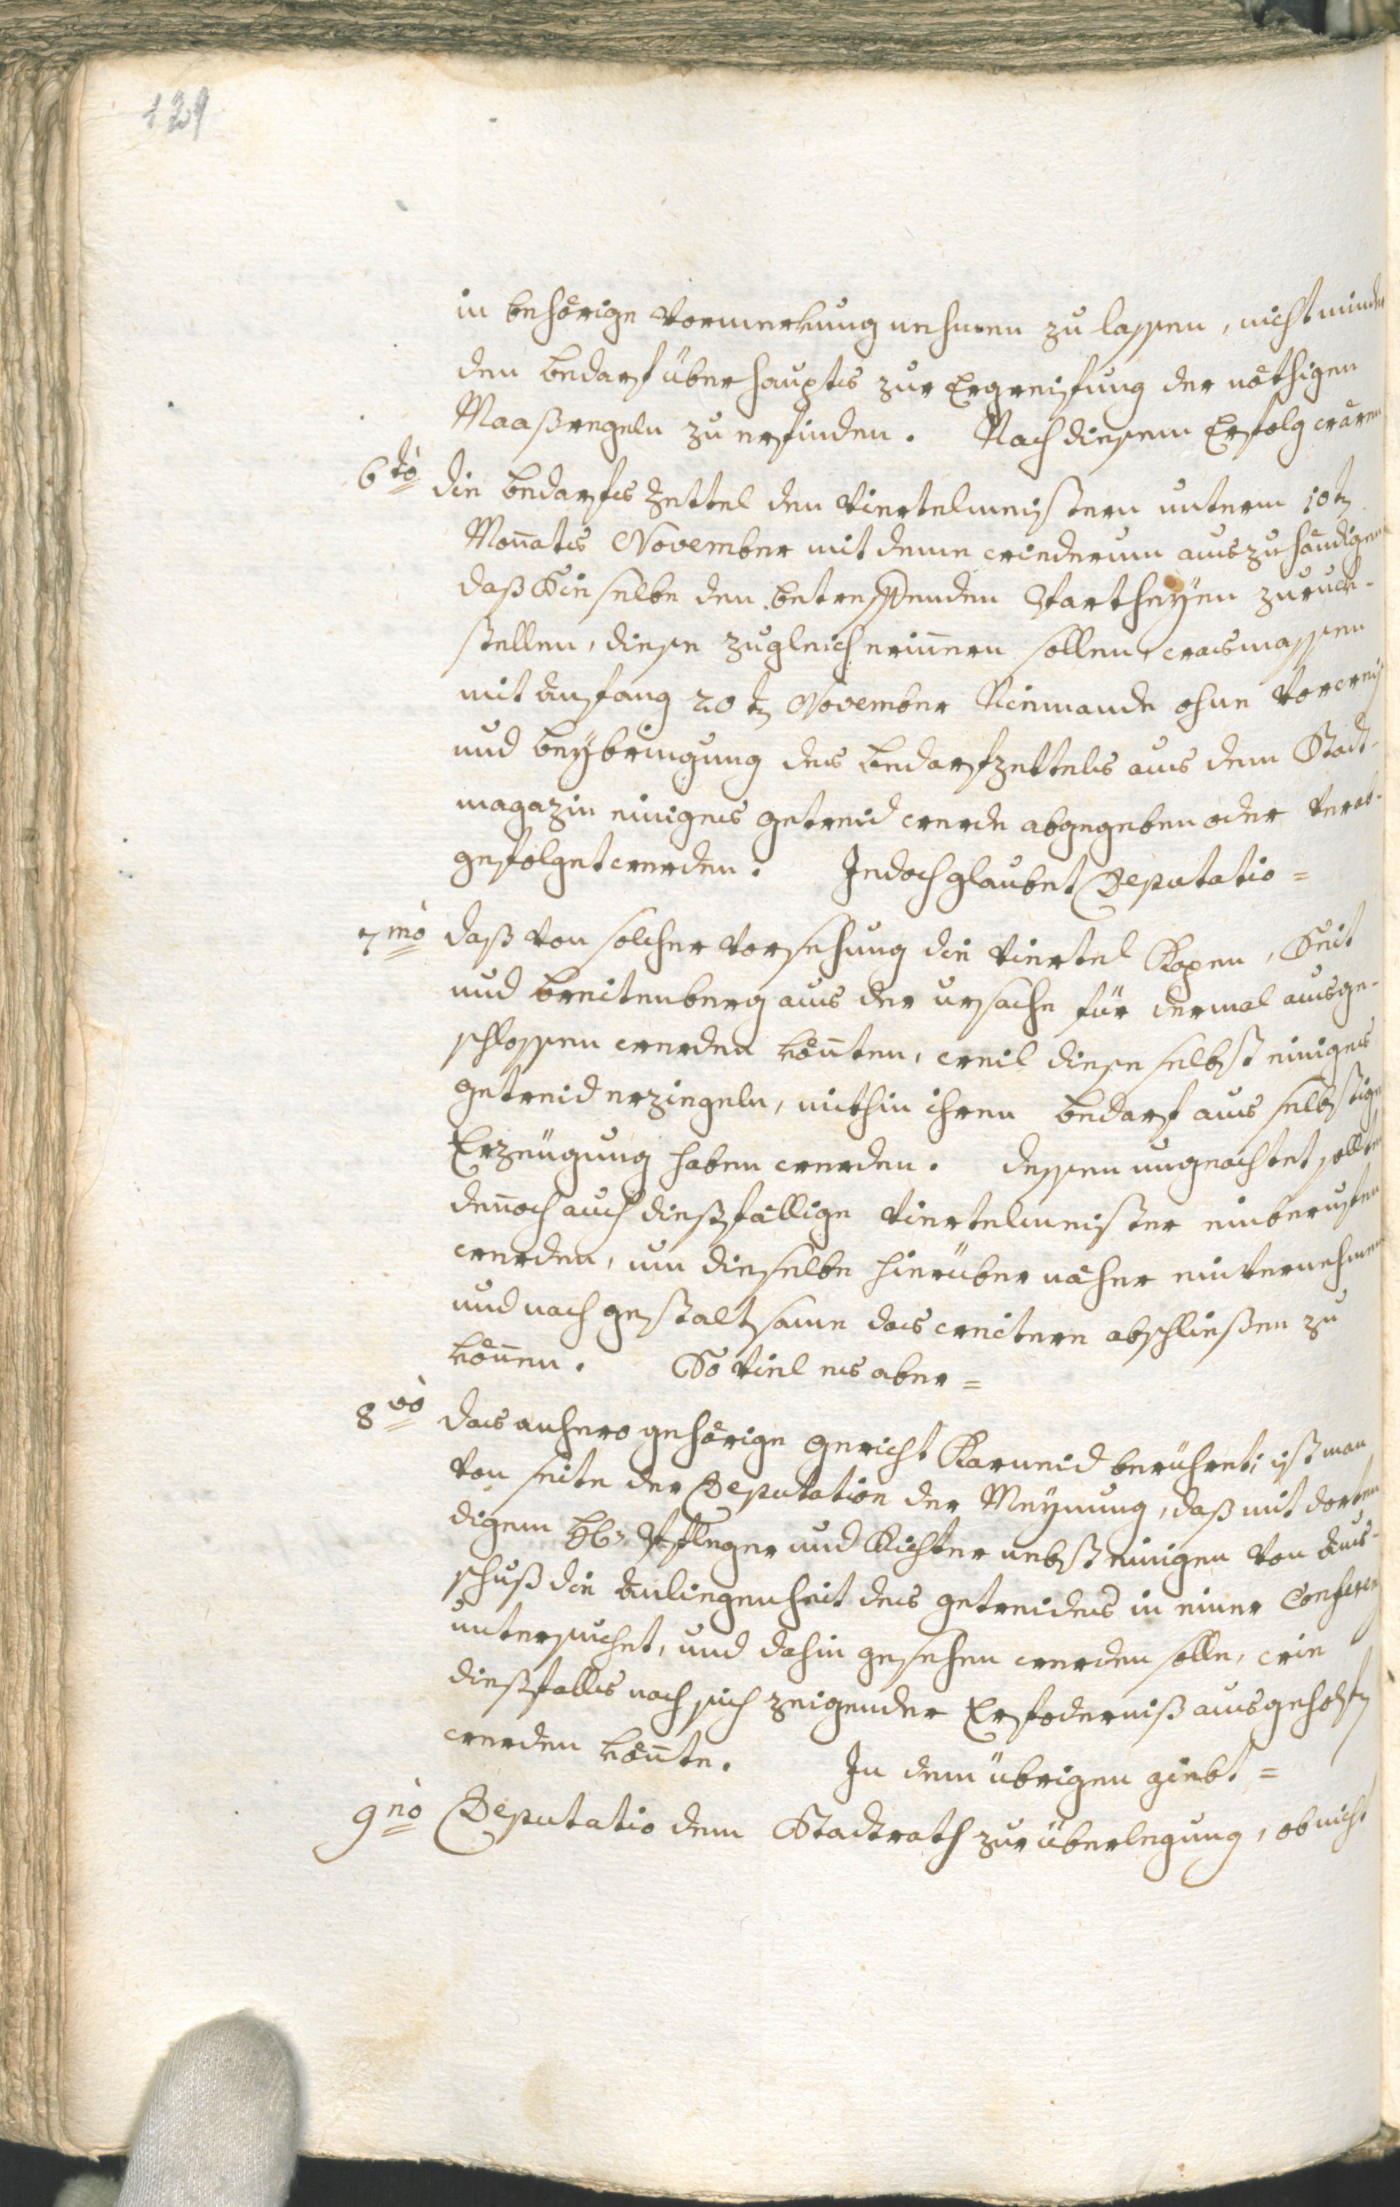 129
in behörige Vormerkung nehmen zu lassen, nicht minder
den bedarf überhaupts zur Ergreiffung der nöthigen
Maaßregeln zu erfinden. Nach diesem Erfolg wären
6tò die bedarfs Zettel den Viertelmeistern unterm 10tn
Monats November mit deme wiederum auszuhändigen
daß Sie selbe den betreffenden Partheyen zuruck-
stellen, diese zugleich erinnern sollen, wasmassen
mit Anfang 20tn November Niemande ohne Vorweis
und beybringung des bedarfzettels aus dem Stadt-
magazin einiges getreid werde abgegeben oder verab-
gefolget werden. Jedoch glaubet Deputatio =
7mò daß von solcher Vorsehung die Viertel Rozen, Seit
und breitenberg aus der ursache für dermal ausge-
schlossen werden könten, weil diese selbst einiges
getreid erziegeln, mithin ihren bedarf aus selbstiger
Erzeugung haben werden. dessen ungeachtet sollten
denoch auch dießfällige Viertelmeister einberuffen
werden, um dieselbe hierüber näher einvernehmen
und nach gestaltsame das weitere abschließen zu
können. So viel es aber =
8vò das anhero gehörige gericht Karneid berühret; ist man
von seite der Deputation der Meynung, daß mit dorten
digem Pfleger und Richter nebst einigen von Aus-
schuß die Anliegenheit des getreides in einer Conferenz
untersuchet, und dahin gesehen werden solle, wie
dießfalls nach sich zeigender Erfoderniß ausgeholfen
werden könte. In dem übrigen giebt =
9nò Deputatio dem Stadtrath zur überlegung, ob nicht